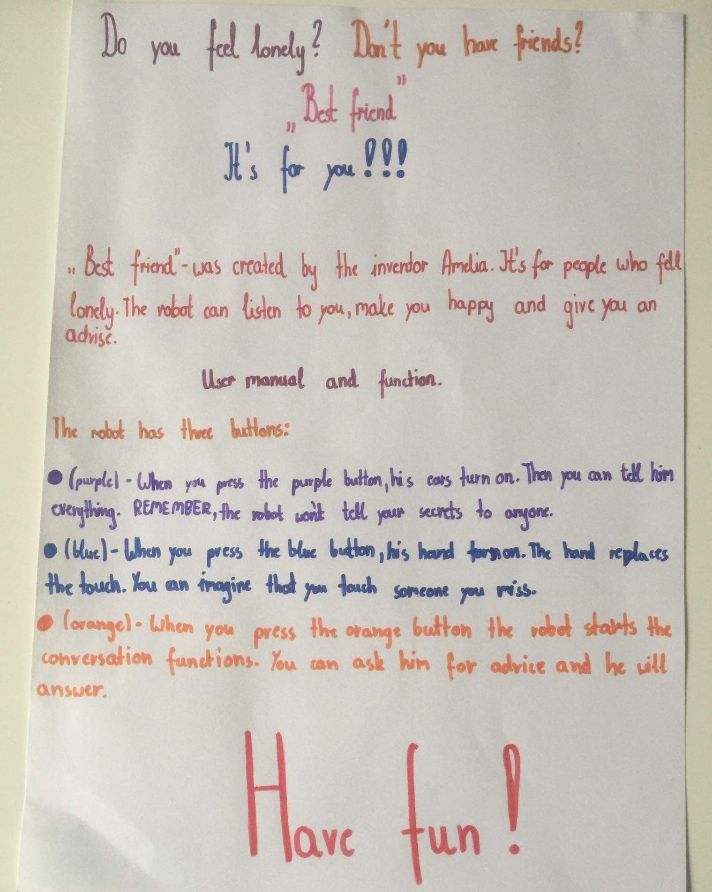 Do you feel lonely? Don't you have friends?
„Best friend”
It's for you!!!
„Best friend"-was created by the inventor Amelia. It's for people who fell
lonely. The robot can listen to you, make you happy and give you an
advise.
User manual and function.
The robot has three buttons:
● (purple) - When you press the purple button, his ears turn on. Then you can tell him
everything. REMEMBER, the robot won't tell your secrets to anyone.
● (blue) - When you press the blue button, his hand turn on. The hand replaces
the touch. You can imagine that you touch someone you miss.
● (orange) - When you press the orange button the robot starts the
conversation functions. You can ask him for advice and he will
answer.
Have fun!